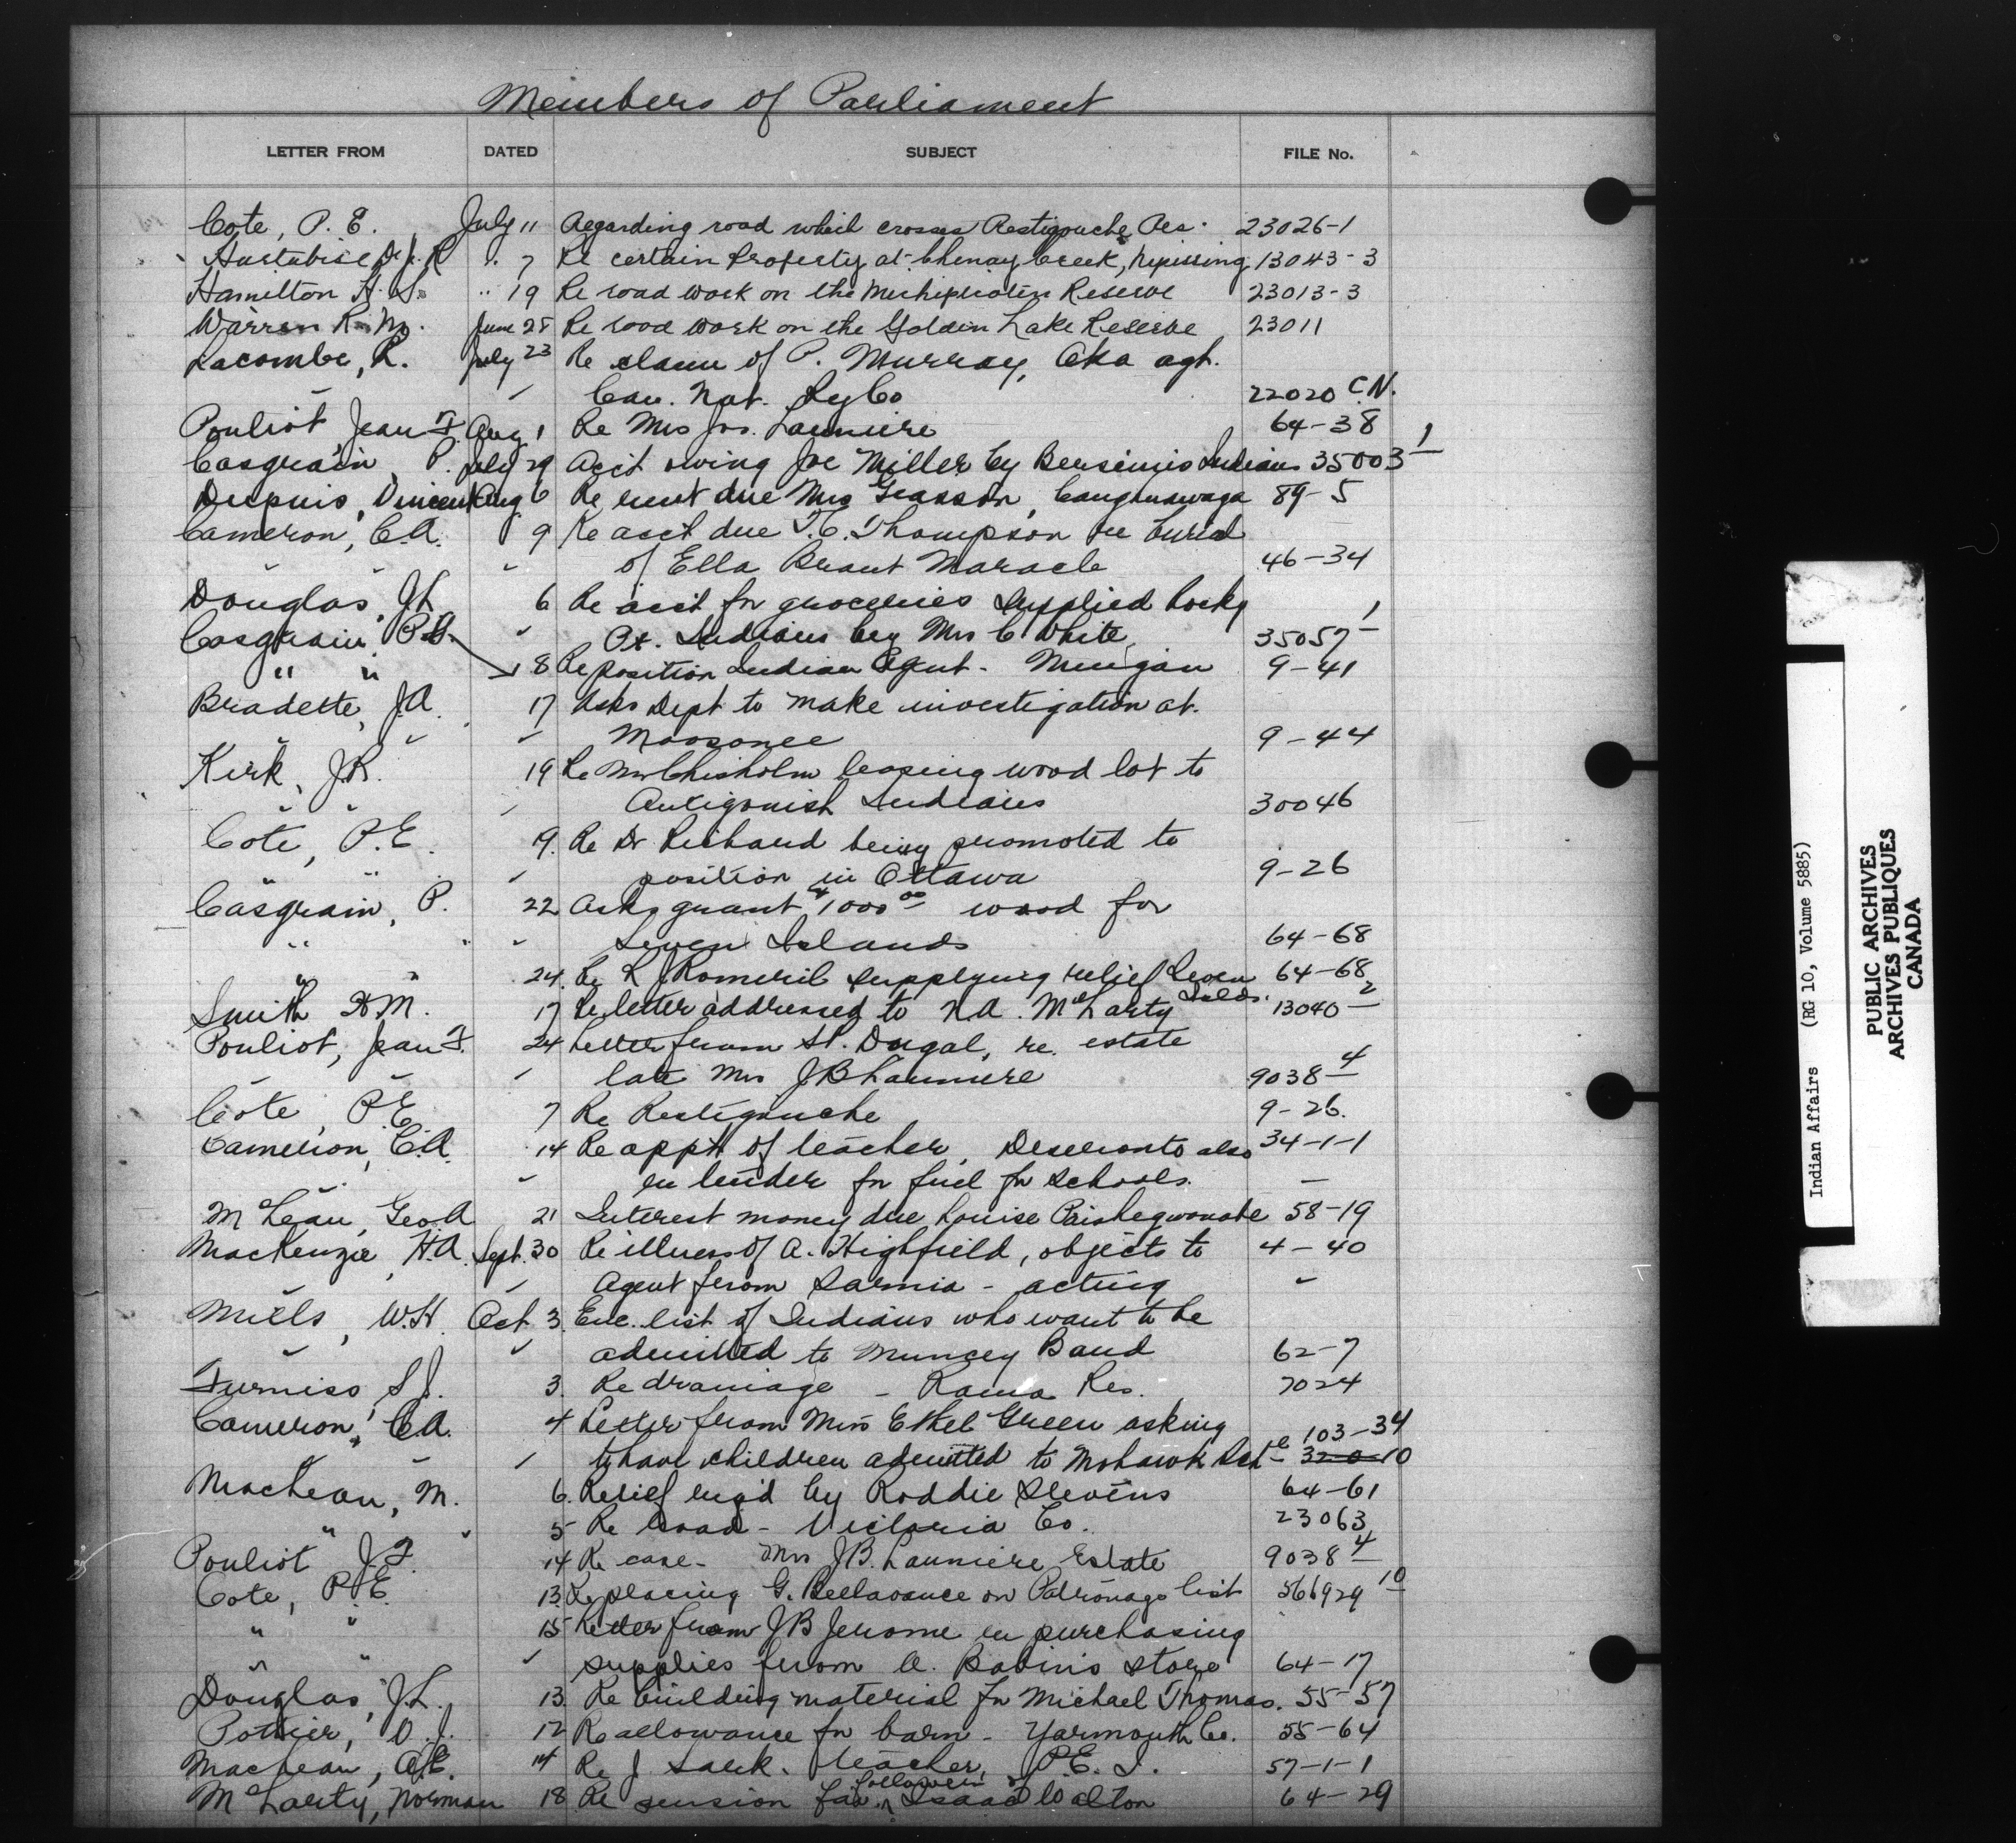 Members of Parliament
LETTER FROM DATED SUBJECT FILE No.
Cote, P. E. July 11 Regarding road which crosses Restigouche Res. 23026-1
Hurtubise Dr J. R " 7 Re certain Property at Chenay Creek, Nipissing 13043-3
Hamilton H. S. " 19 Re road work on the Michipicoten Reserve 23013-3
Warren R. M. June 28 Re road work on the Golden Lake Reserve 23011
Lacombe, L. July 23 Re claim of P. Murray, Oka agt.
" Can. Nat. Ry Co 22020 C.N.
Pouliot, Jean F. Aug 1 Re Mrs Jos. Launiere 64-38
Casgrain, P. July 29 Acct owing Joe Miller by Bersimis Indians 35003-1
Dupuis, Vincent Aug 6 Re rent due Mrs Giasson, Caughnawaga 89-5
Cameron, C.A. " 9 Re acct due T.C. Thompson re burial
" " " of Ella Brant Maracle 46-34
Douglas, J.L. 6 Re acct for groceries supplied Rocky
Casgrain, P. " Pt. Indians by Mrs C White 35057-1
" " 18 Re position Indian Agent - Mingan 9-41
Bradette, J.A. 17 Asks Dept to make investigation at
" " " Moosonee 9-44
Kirk, J.R. 19 Re Mr Chisholm leasing wood lot to
" " " Antigonish Indians 30046
Cote, P.E. 19. Re Dr Richard being promoted to
" " " position in Ottawa 9-26
Casgrain, P. 22 Asks grant $1000 00 wood for
" " " Seven Islands 64-68
" " 24. Re R J Romeril supplying relief Seven Islds. 64-68
Smith H M. 17 Re letter addressed to N.A. McLarty 13040-2
Pouliot, Jean F. 24 Letter from St. Dugal, re. estate
" " " late Mrs J B Launiere 9038-4
Cote, P.E. 7 Re Restigouche 9-26.
Cameron, C.A. 14 Re appt of teacher, Deseronto also 34-1-1
" re tender for fuel for schools. -
McLean, Geo. A 21 Interest money due Louise Paishegwonabe 58-19
MacKenzie, H.A. Sept. 30 Re illness of A. Highfield, objects to 4-40
" Agent from Sarnia - acting "
Mills, W.H. Oct 3. Enc. list of Indians who want to be
" " admitted to Muncey Band 62-7
Furniss, S.J. 3. Re drainage - Rama Res. 7024
Cameron, C.A. 4 Letter from Mrs Ethel Green asking 103-34
" " " to have children admitted to Mohawk Inst e 320-10
MacLean, M. 6. Relief req'd by Roddie Stevens 64-61
" " 5 Re Road - Victoria Co. 23063
Pouliot J.F. 14 Re case - Mrs J.B. Launiere Estate 9038-4
Cote, P.E. 13. Re placing G. Bellavance on Patronage list 566929-10
" " 15 Letter from J B Jerome re purchasing
" " " supplies from A. Babin's store 64-17
Douglas, J.L. 13. Re building material for Michael Thomas. 55-57
Pottier, V.J. 12 Re allowance for barn - Yarmouth Co. 55-64
MacLean, A.E. 14 Re J. Sark. teacher, P.E.I. 57-1-1
McLarty, Norman 18 Re pension for Isaac Walton 64-29
Indian Affairs (RG 10, Volume 5885)
PUBLIC ARCHIVES
ARCHIVES PUBLIQUES
CANADA